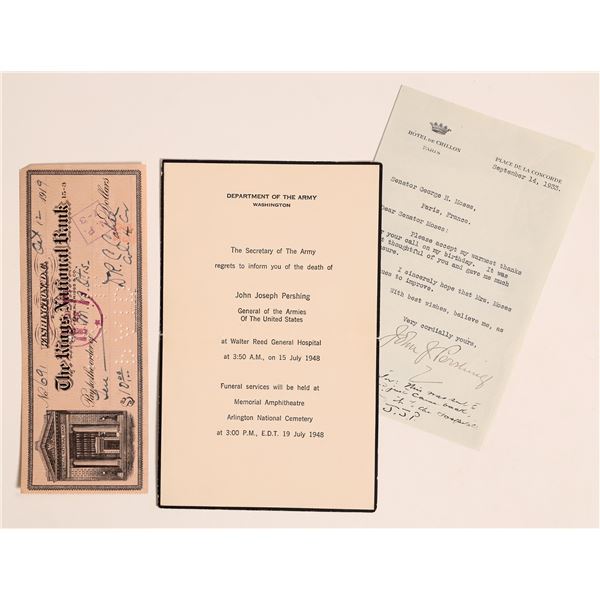 WASHINGTON, D.C. Oct 12 1919
No 691
The Riggs National Bank 15-3
Pay to the order of
Dollars
DEPARTMENT OF THE ARMY
WASHINGTON
The Secretary of The Army
regrets to inform you of the death of
John Joseph Pershing
General of the Armies
Of The United States
at Walter Reed General Hospital
at 3:50 A.M., on 15 July 1948
Funeral services will be held at
Memorial Amphitheatre
Arlington National Cemetery
at 3:00 P.M., E.D.T. 19 July 1948
HÔTEL DE CRILLON
PARIS
PLACE DE LA CONCORDE
September 14, 1933.
Senator George H. Moses,
Paris, France.
Dear Senator Moses:
Please accept my warmest thanks
your call on my birthday. It was
thoughtful of you and gave me much
sure.
I sincerely hope that Mrs. Moses
ues to improve.
With best wishes, believe me, as
Very cordially yours,
John J. Pershing
This was sent
just came back
the Hospital
J.J.P